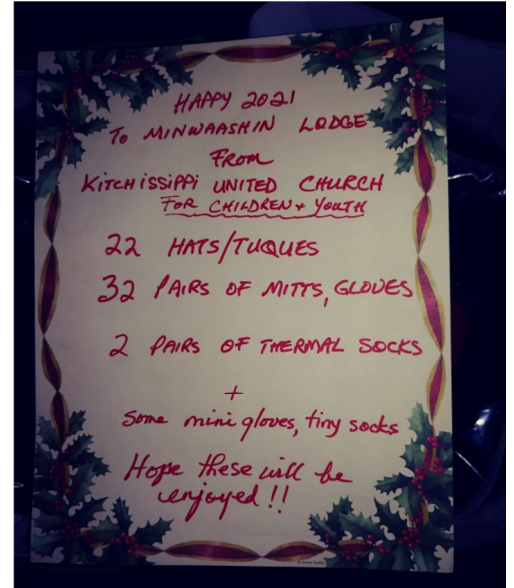 HAPPY 2021
TO MINWAASHIN LODGE
FROM
KITCHISSIPPI UNITED CHURCH
FOR CHILDREN + YOUTH
22 HATS/TUQUES
32 PAIRS OF MITTS, GLOVES
2 PAIRS OF THERMAL SOCKS
+
Some mini gloves, tiny socks
Hope these will be
enjoyed!!